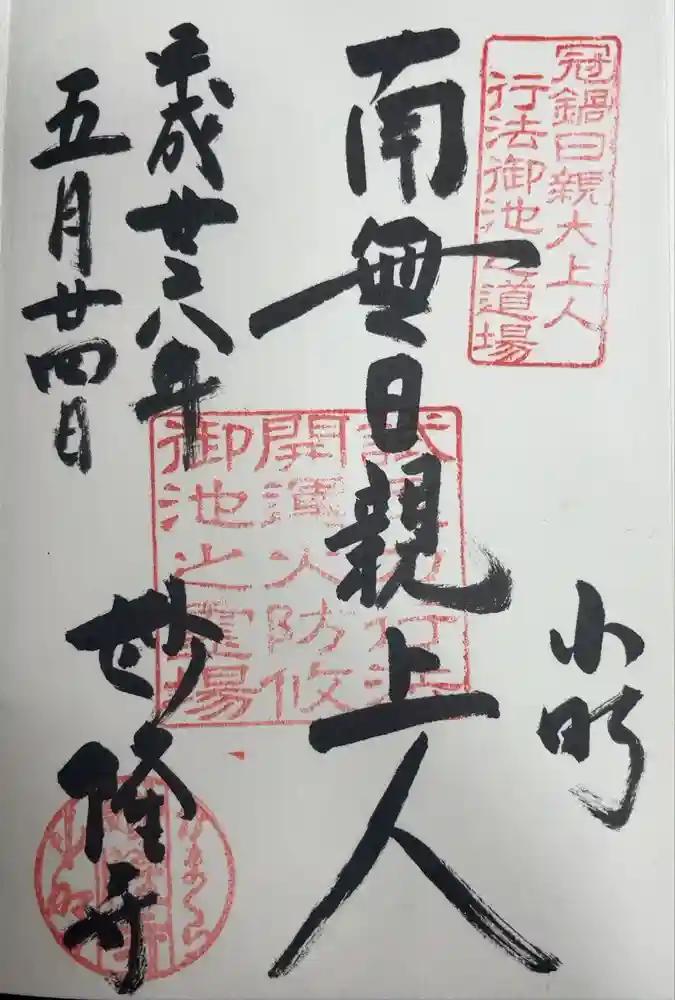 冠鍋日親大上人
行法御池之道場
小町
南無日親上人
開運火防攸
御池之霊場
平成廿六年
五月廿四日
妙隆寺